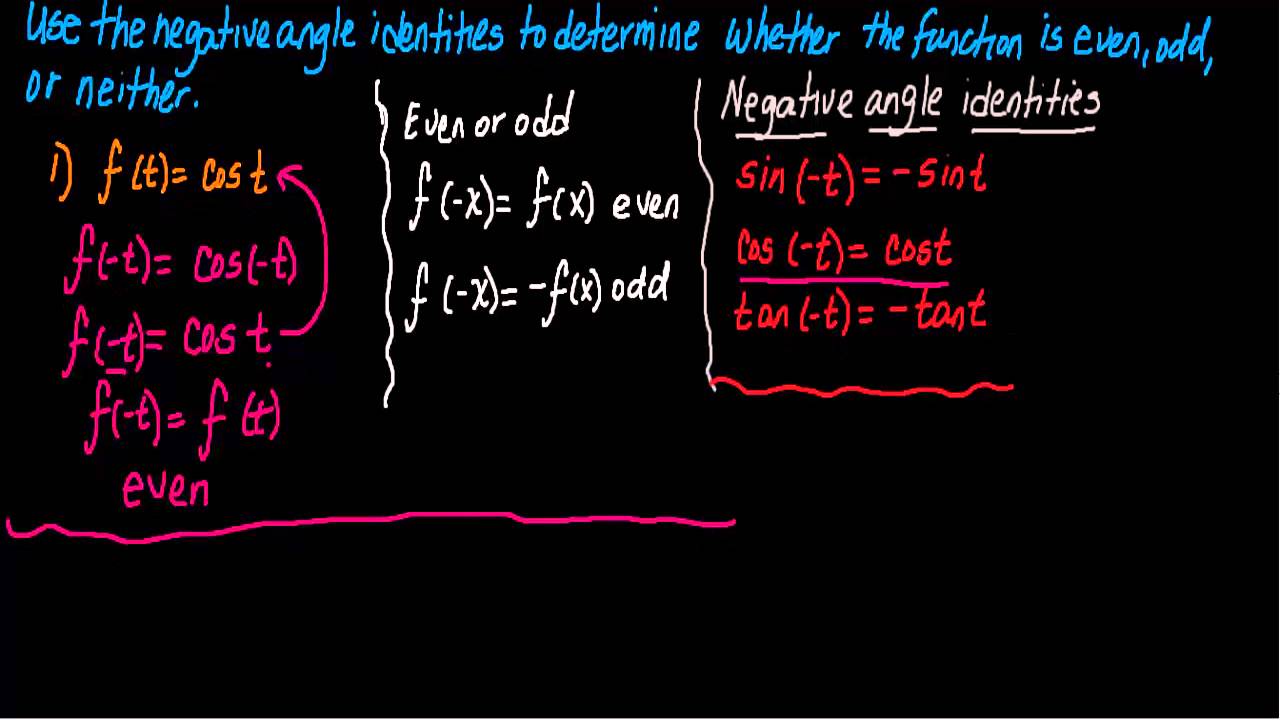 Use the negative angle identities to determine whether the function is even, odd,
or neither.
1) f(t)= cos t
f(-t)= cos(-t)
f(-t)= cos t
f(-t)= f(t)
even
Even or odd
f(-x)= f(x) even
f(-x)= -f(x) odd
Negative angle identities
sin(-t)= -sint
cos(-t)= cost
tan(-t)= -tant